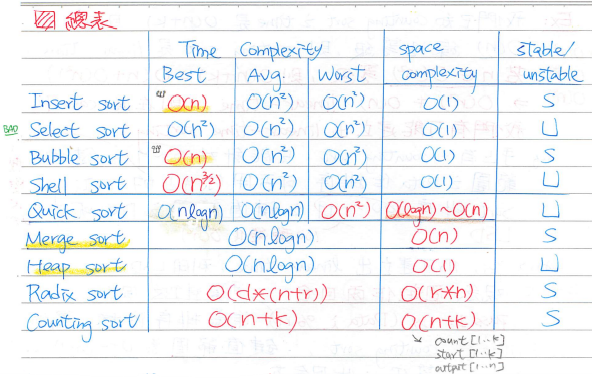 總表
Time Complexity space stable/
Best Avg. Worst complexity unstable
Insert sort (1) O(n) O(n²) O(n²) O(1) S
BAD Select sort O(n²) O(n²) O(n²) O(1) U
Bubble sort (1) O(n) O(n²) O(n²) O(1) S
Shell sort O(n^3/2) O(n²) O(n²) O(1) U
Quick sort O(nlogn) O(nlogn) O(n²) O(logn)~O(n) U
Merge sort O(nlogn) O(n) S
Heap sort O(nlogn) O(1) U
Radix sort O(d*(n+r)) O(r*n) S
Counting sort O(n+k) O(n+k) S
↘ count[1..k]
start[1..k]
output[1..n]